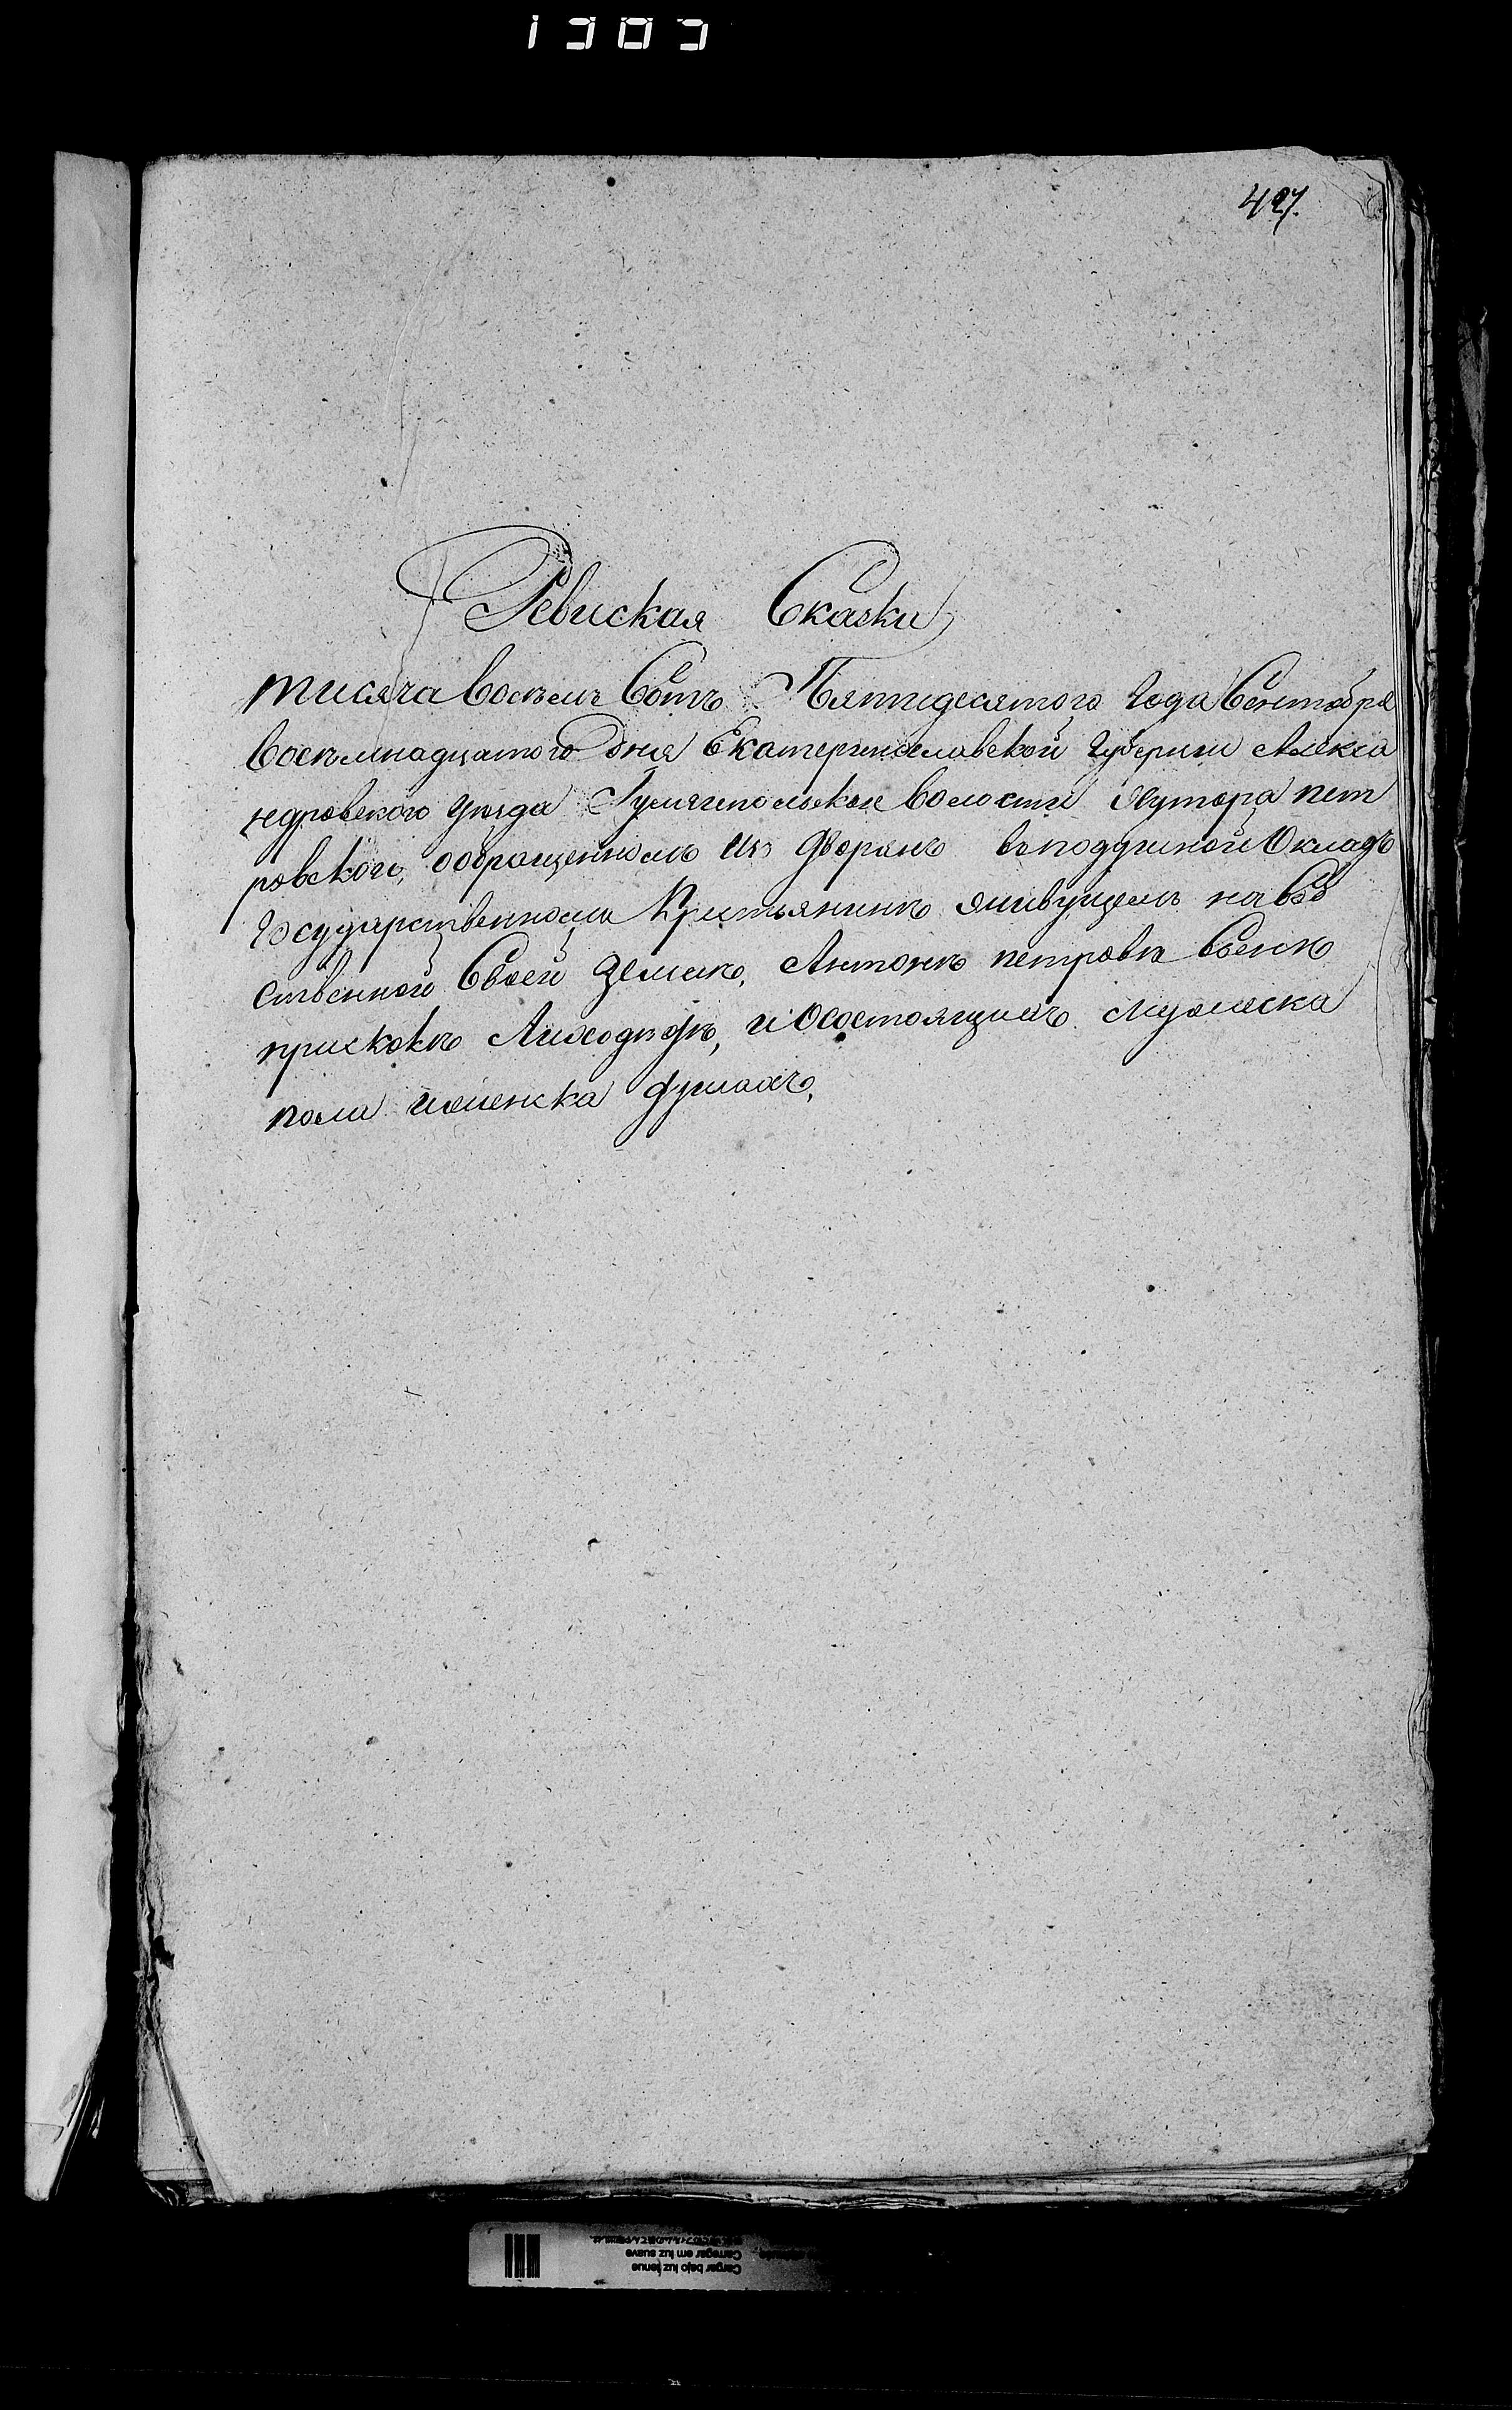 1303
427.
Ревиская Скаски
тисяча Восемъ Сотъ Пятидесятого Года Сентября
Восемнадцатого дня Екатеринославской Губернии Алекса
ндровского уезда Гуляйпольской Волости Хутора пет
ровского, ообращенномъ Изъ дворянъ въ поддушной Окладъ
Государственномъ Крестьянинѣ живущемъ на Соб
ственной Своей Землѣ, Антонѣ петровѣ Сынѣ
Лиходѣдѣ, и Осостоящихъ мужеска
пола иженска душахъ,